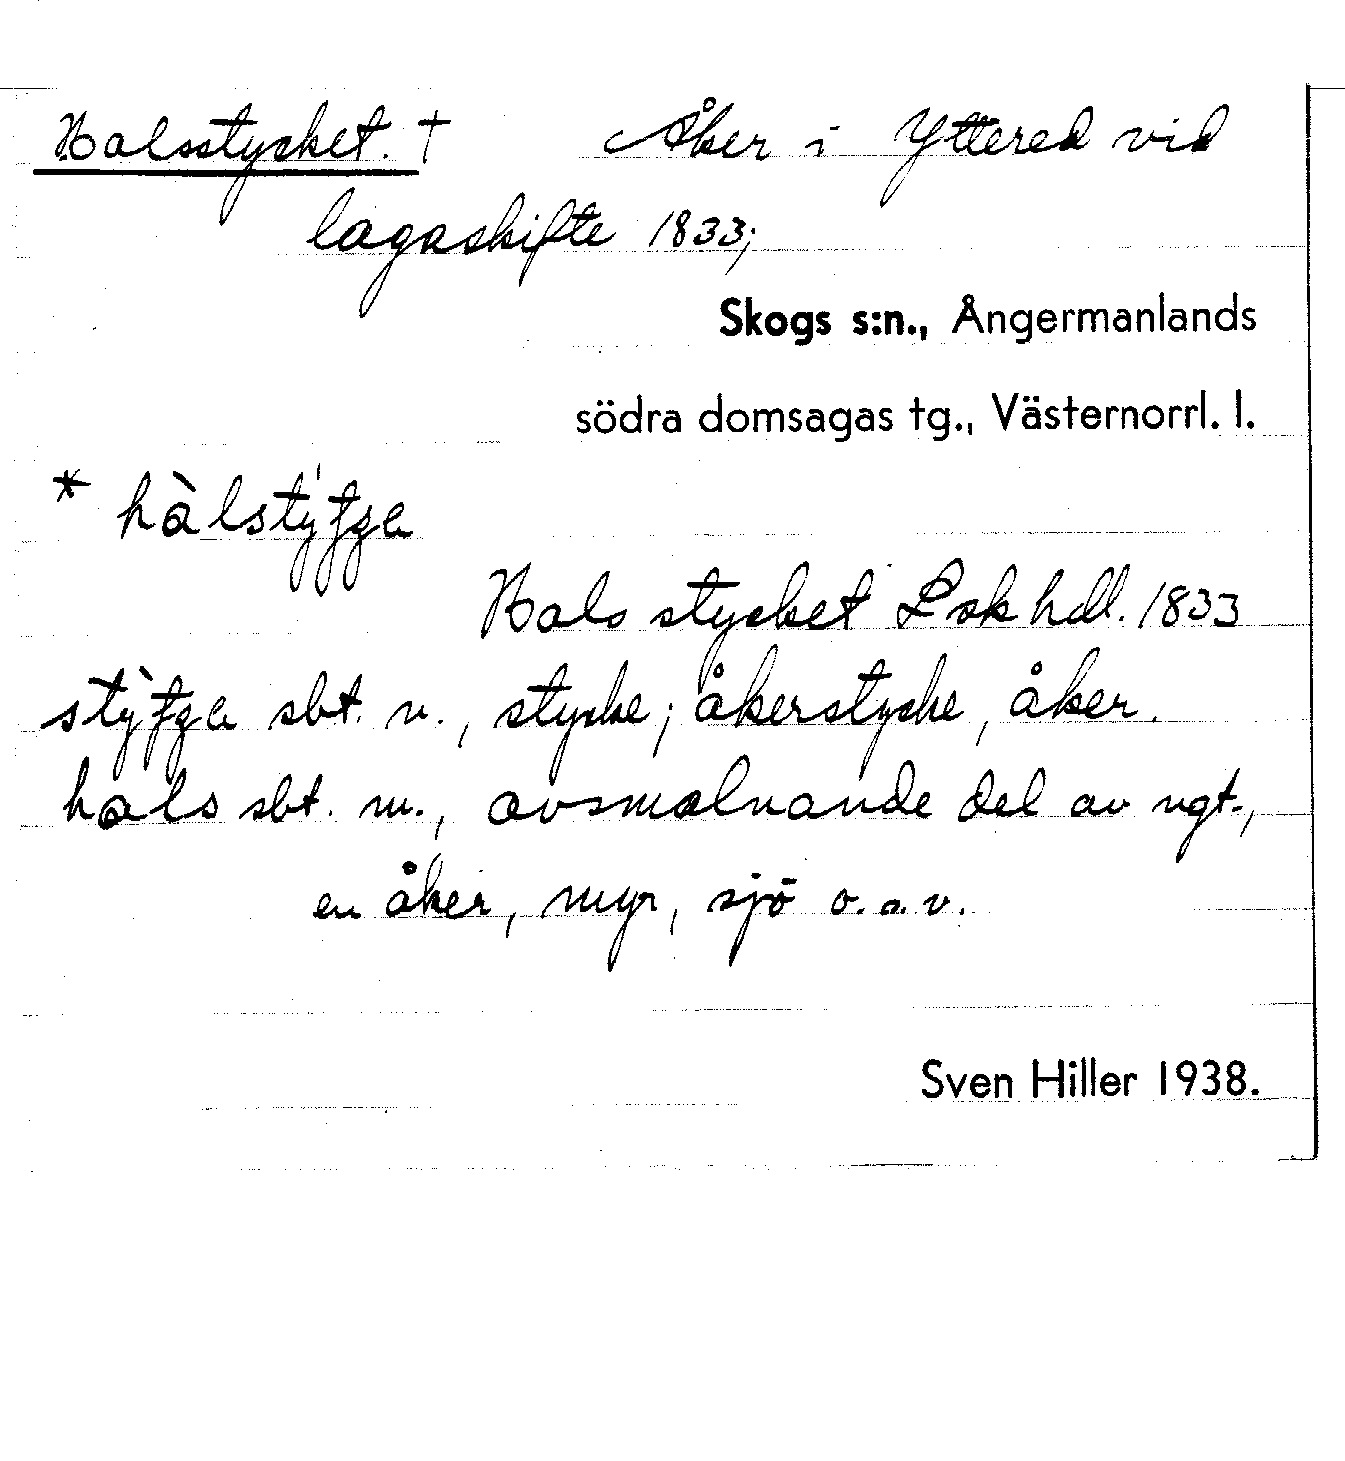 Halsstycket. † Åker i Yttered vid
lagaskifte 1833;
Skogs s:n., Ångermanlands
södra domsagas tg., Västernorrl. l.
Hals stycket Lsk hdl. 1833
sbt. n., stycke; åkerstycke, åker.
hals sbt. m., avsmalnande del av ngt.,
en åker, myr, sjö o.s.v.
Sven Hiller 1938.